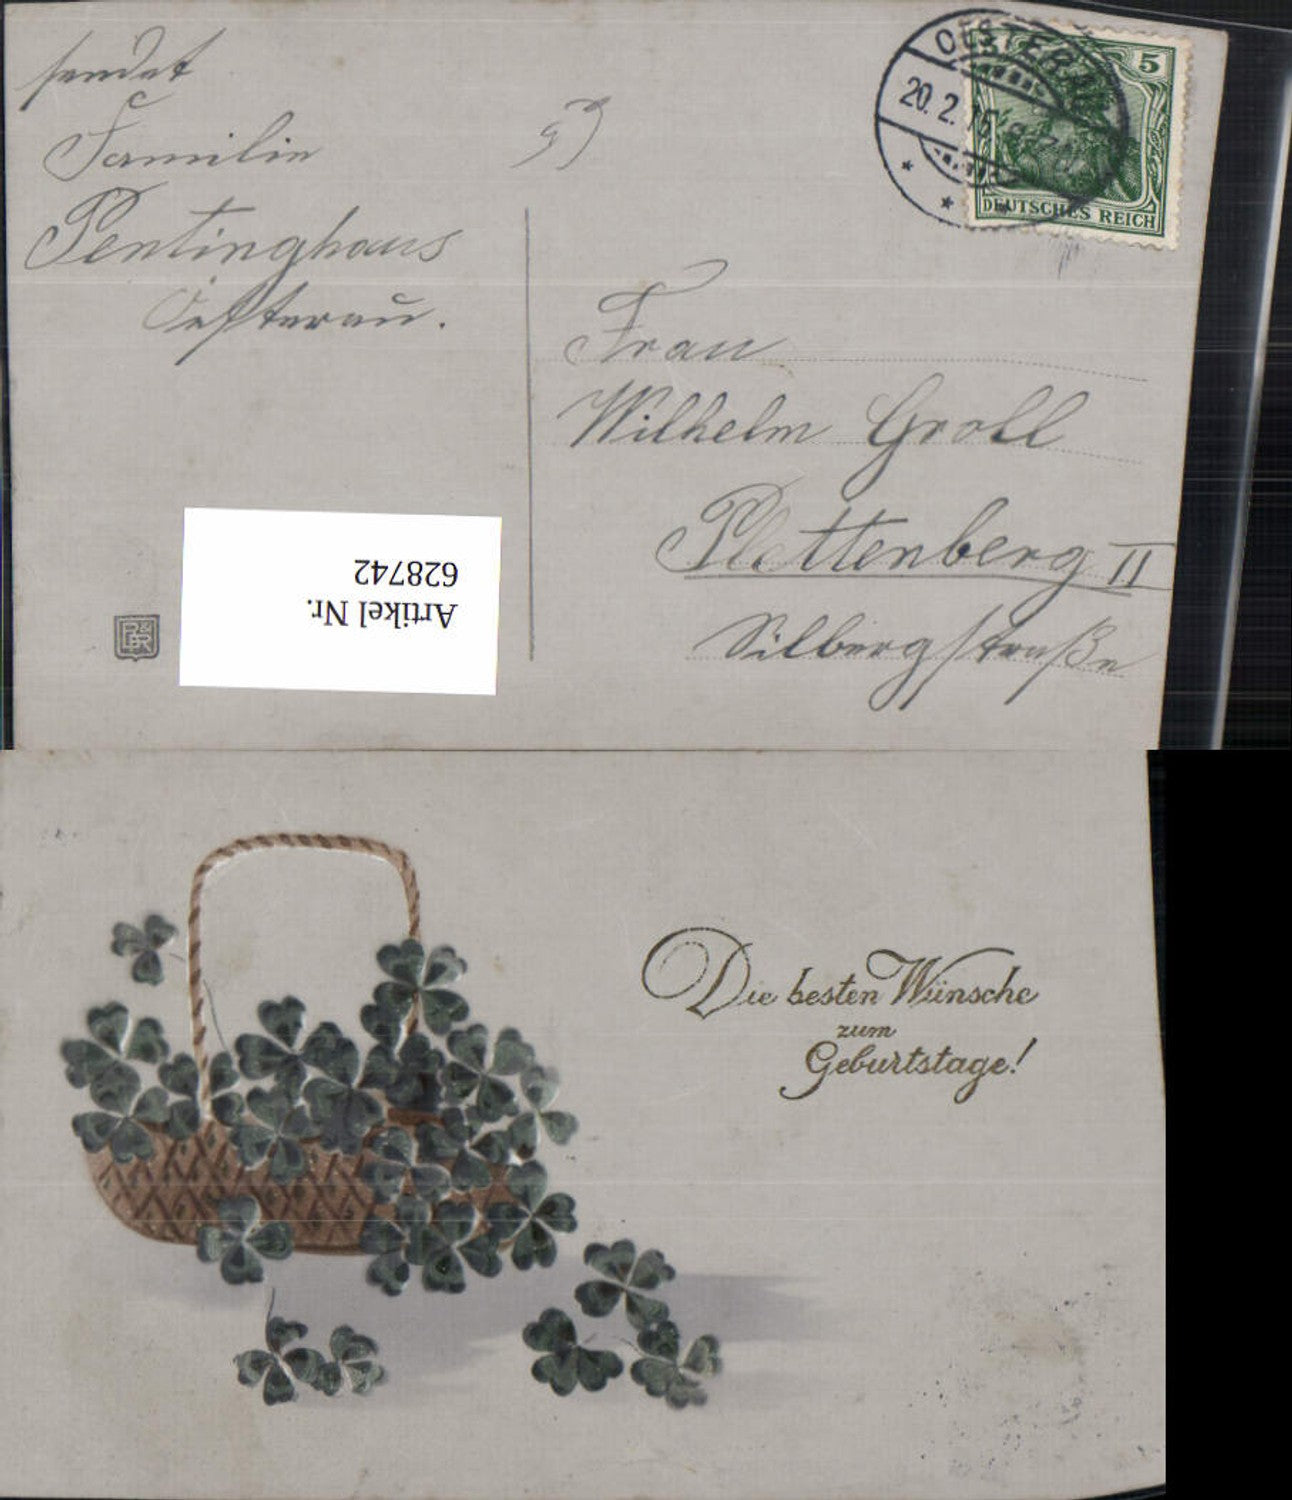 sendet
Familie
Pentinghaus
Oesterau.
OESTERAU
20. 2. 15
5
DEUTSCHES REICH
Frau
Wilhelm Groll
Plettenberg II
Silbergstraße
Artikel Nr.
628742
Die besten Wünsche
zum
Geburtstage!